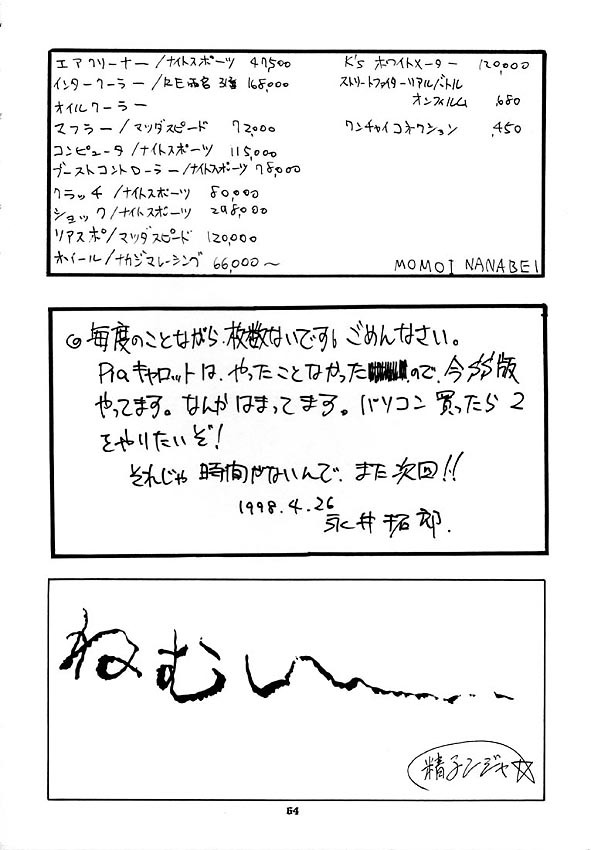 エアクリーナー/ナイトスポーツ 47,500
インタークーラー/RE雨宮 3層 168,000
オイルクーラー
マフラー/マツダスピード 72,000
コンピュータ/ナイトスポーツ 115,000
ブーストコントローラー/ナイトスポーツ 78,000
クラッチ/ナイトスポーツ 80,000
ショック/ナイトスポーツ 298,000
リアスポ/マツダスピード 120,000
ホイール/ナカジマレーシング 66,000〜
K's ホワイトメーター 120,000
ストリートファイターリアルバトル
オンフィルム 680
ワンチャイコネクション 450
MOMOI NANABEI
◎毎度のことながら、枚数ないです。ごめんなさい。
Piaキャロットは、やったことなかったので、今SS版
やってます。なんかはまってます。パソコン買ったら2
をやりたいぞ!
それじゃ時間ないんで、また次回!!
1998.4.26
永井拓郎.
ねむい〜...
精子ンジャ☆
64